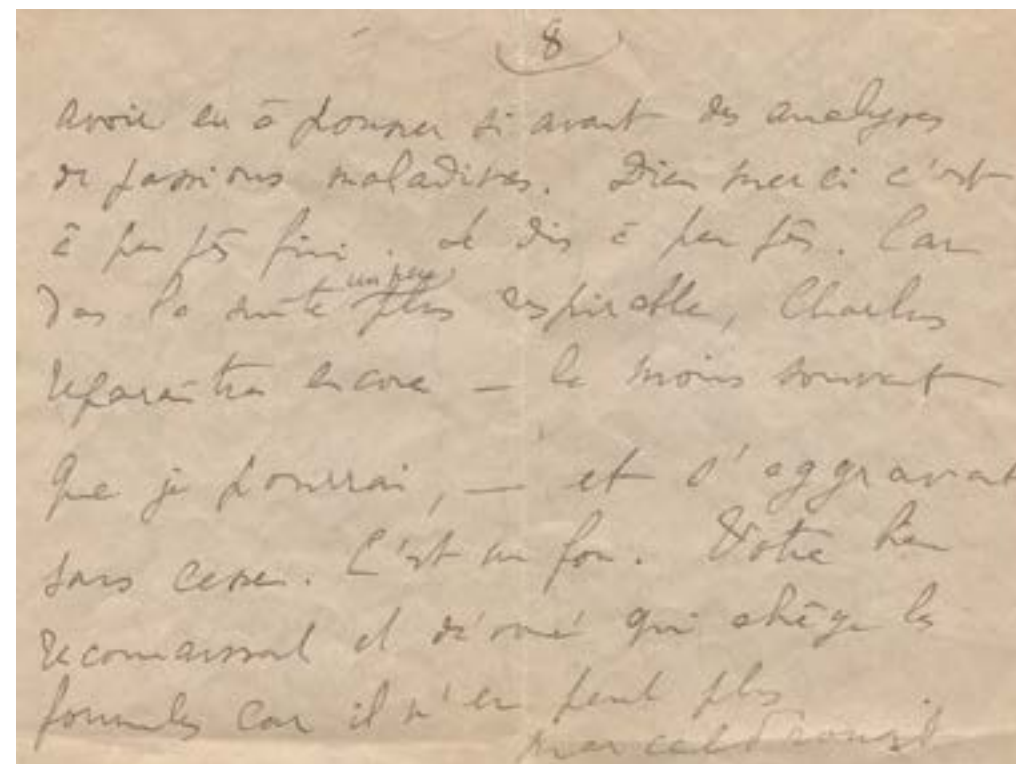 8
avoir eu à pousser si avant des analyses
de passions maladives. Dieu merci c'est
à peu près fini. Je dis à peu près. Car
dans la suite un peu plus respirable, Charlus
reparaîtra encore — le moins souvent
que je pourrai, — et s'aggravant
sans cesse. C'est un fou. Votre bien
reconnaissant et dévoué qui abrège les
formules car il n'en peut plus
Marcel Proust